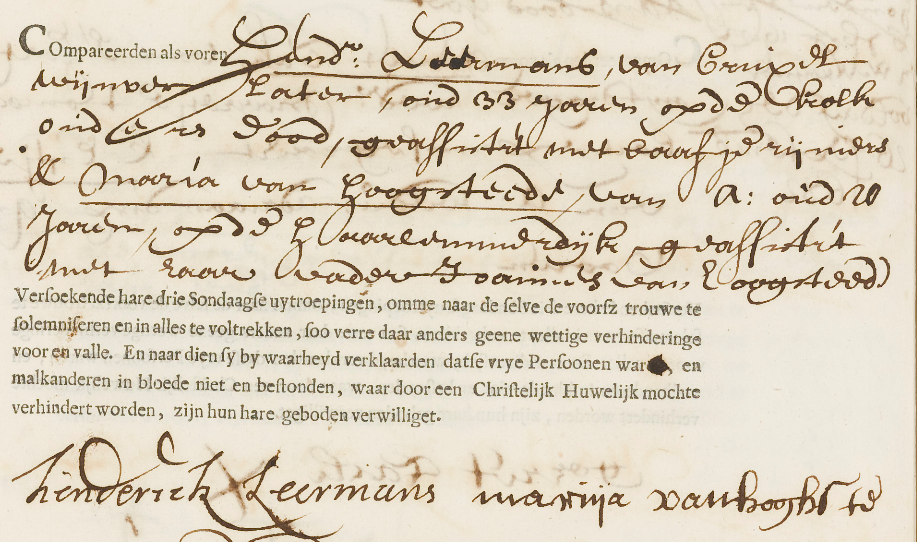 Compareerden als voren Hendr: Leermans, van Bruxel
wijnverlater, oud 33 Jaren opde Kolk
ouders dood, geassisteert met Baafje rijniers
& Maria van Hoogsteede, van A: oud 20
Jaren, opde Haarlemmerdijk, geassisteert
met haar vader Joannes van Hoogsteede
Versoekende hare drie Sondaagse uytroepingen, omme naar de selve de voorsz trouwe te
solemniseren en in alles te voltrekken, soo verre daar anders geene wettige verhinderinge
voor en valle. En naar dien sy by waarheyd verklaarden datse vrye Persoonen waren, en
malkanderen in bloede niet en bestonden, waar door een Christelijk Huwelijk mochte
verhindert worden, zijn hun hare geboden verwilliget.
hinderick Leermans marija vanhooghste